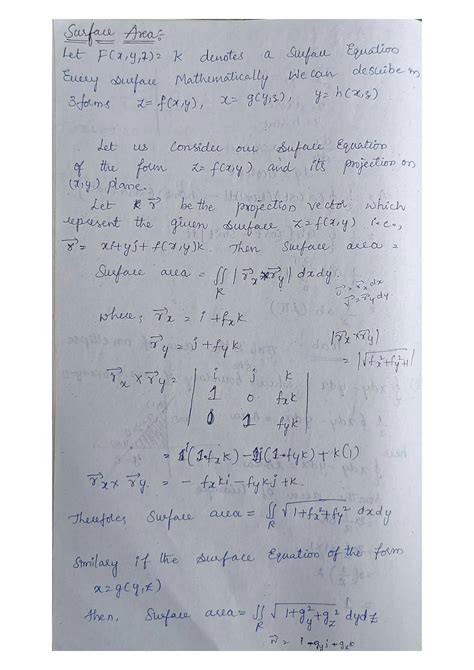 Surface Area:-
Let F(x,y,z)= K denotes a Surface Equation
Every Surface Mathematically We can describe in
3forms z=f(x,y), x=g(y,z), y=h(x,z)
Let us Consider our Surface Equation
of the form z=f(x,y) and its projection on
(x,y) plane.
Let r⃗ be the projection vector which
represent the given Surface z=f(x,y) i.e.,
r⃗ = xi+yj+f(x,y)k. Then Surface area =
Surface area = ∬_R |r⃗_x × r⃗_y| dxdy.
u⃗ = r⃗_x dx
v⃗ = r⃗_y dy
where; r⃗_x = i+f_x k
r⃗_y = j+f_y k.
|r⃗_x × r⃗_y|
= |√(f_x²+f_y²+1)|
r⃗_x × r⃗_y = | i j k |
| 1 0 f_x k |
| 0 1 f_y k |
= i(1·f_x k) - j(1·f_y k) + k(1)
r⃗_x × r⃗_y = - f_x k i - f_y k j + k.
Therefore, Surface area = ∬_R √(1+f_x²+f_y²) dxdy
Similary if the Surface Equation of the form
x=g(y,z)
Then, Surface area = ∬_R √(1+g_y²+g_z²) dydz
= i+g_y j+g_z k